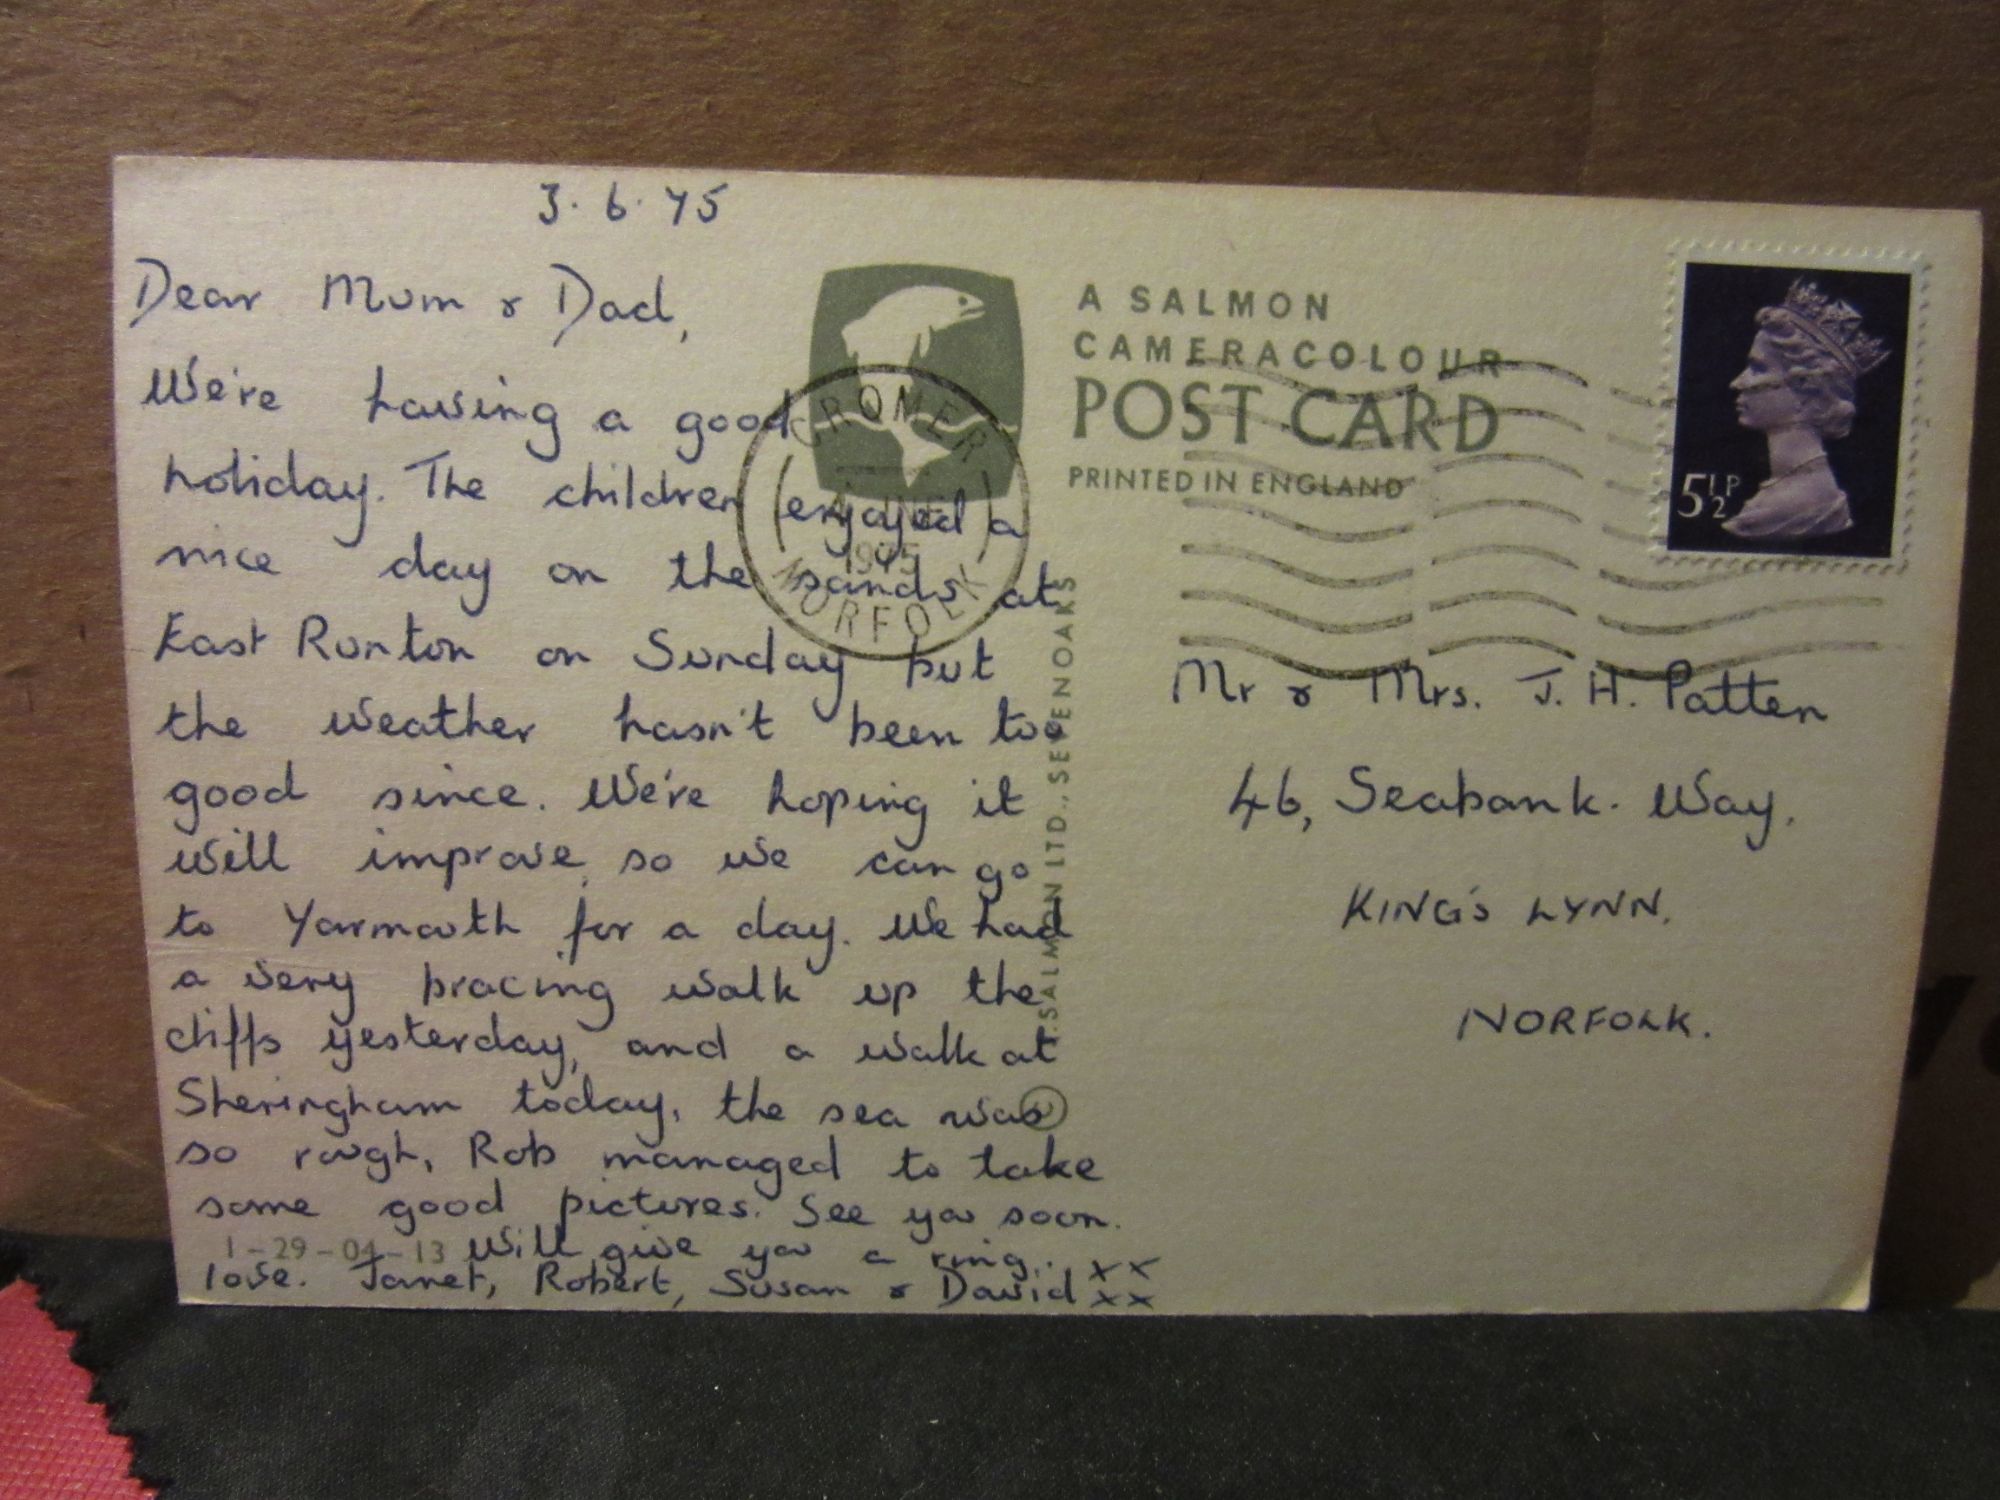 3.6.75
Dear Mum & Dad,
We're having a good
holiday. The children enjoyed a
nice day on the sands at
East Runton on Sunday but
the weather hasn't been too
good since. We're hoping it
will improve, so we can go
to Yarmouth for a day. We had
a very bracing walk up the
cliffs yesterday, and a walk at
Sheringham today, the sea was
so rough, Rob managed to take
some good pictures. See you soon.
1-29-04-13 Will give you a ring..
love. Janet, Robert, Susan & David xx
xx
CROMER
JNE
1975
NORFOLK
A SALMON
CAMERACOLOUR
POST CARD
PRINTED IN ENGLAND
J. SALMON LTD., SEVENOAKS
5½P
Mr & Mrs. J. H. Patten
46, Seabank. Way.
KING'S LYNN.
NORFOLK.